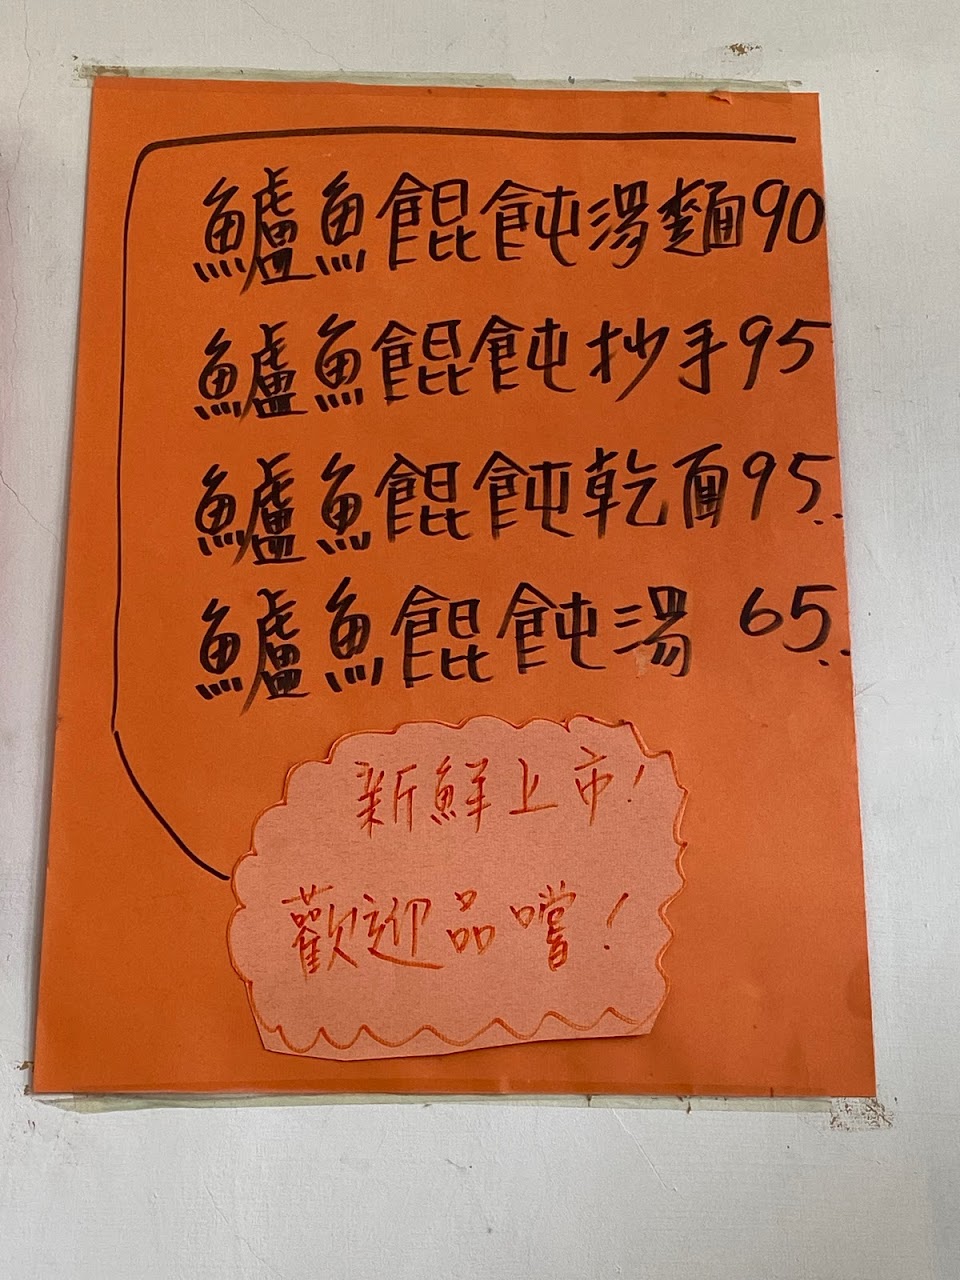 鱸魚餛飩湯麵90
鱸魚餛飩抄手95
鱸魚餛飩乾面95
鱸魚餛飩湯 65
新鮮上市!
歡迎品嚐!